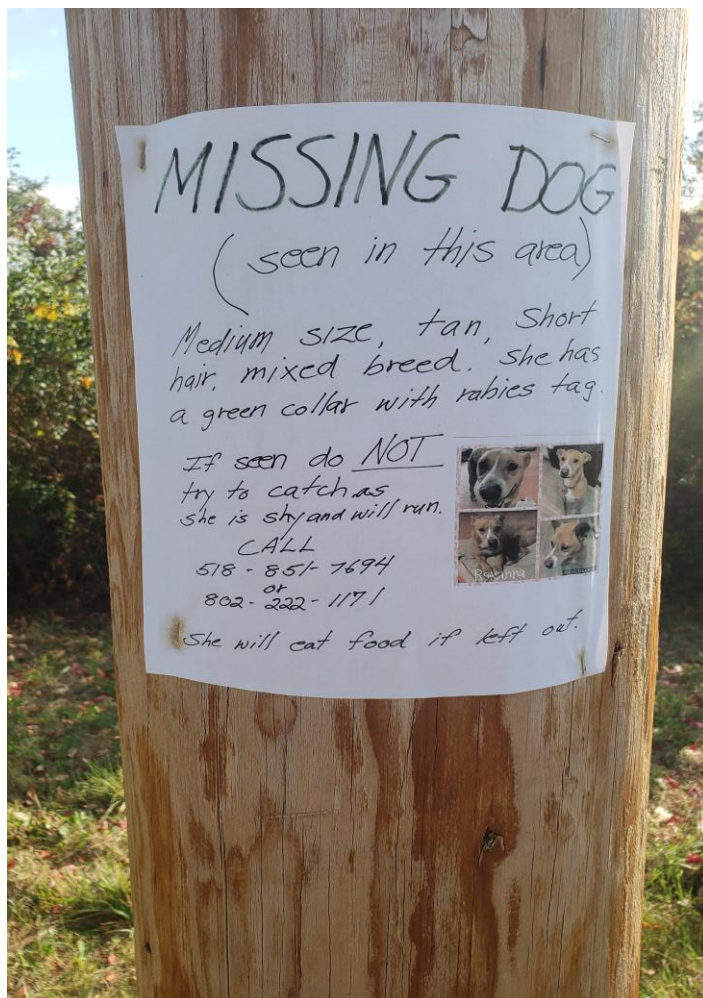 MISSING DOG
(seen in this area)
Medium size, tan, short
hair, mixed breed. She has
a green collar with rabies tag.
If seen do NOT
try to catch as
she is shy and will run.
CALL
518-851-7694
or
802-222-1171
She will eat food if left out.